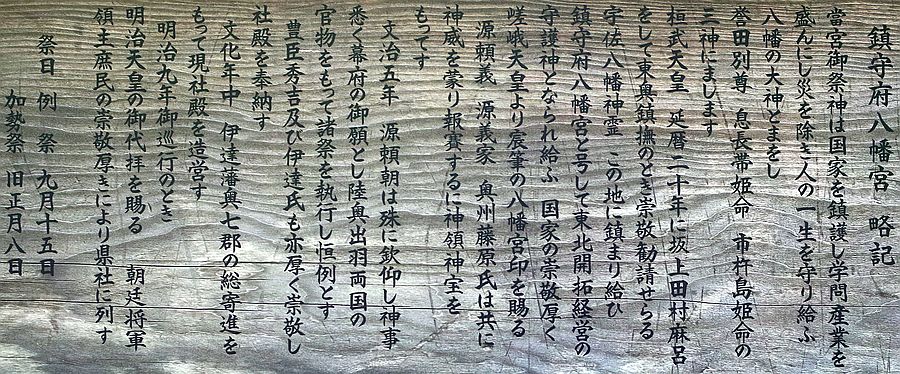 鎮守府八幡宮　略記
當宮御祭神は国家を鎮護し学問産業を
盛んにし災を除き人の一生を守り給ふ
八幡の大神とまをし
誉田別尊　息長帯姫命　市杵島姫命の
三神にまします
桓武天皇　延暦二十年に坂上田村麻呂
をして東奥鎮撫のとき崇敬勧請せらる
宇佐八幡神霊　この地に鎮まり給ひ
鎮守府八幡宮と号して東北開拓経営の
守護神となられ給ふ　国家の崇敬厚く
嵯峨天皇より宸筆の八幡宮印を賜る
源頼義　源義家　奥州藤原氏は共に
神威を蒙り報賽するに神領神宝を
もってす
文治五年　源頼朝は殊に欽仰し神事
悉く幕府の御願とし陸奥出羽両国の
官物をもって諸祭を執行し恒例とす
豊臣秀吉及び伊達氏も亦厚く崇敬し
社殿を奉納す
文化年中　伊達藩奥七郡の総寄進を
もって現社殿を造営す
明治九年御巡行のとき
明治天皇の御代拝を賜る　朝廷将軍
領主庶民の崇敬厚きにより県社に列す
祭日　例祭　九月十五日
加勢祭　旧正月八日